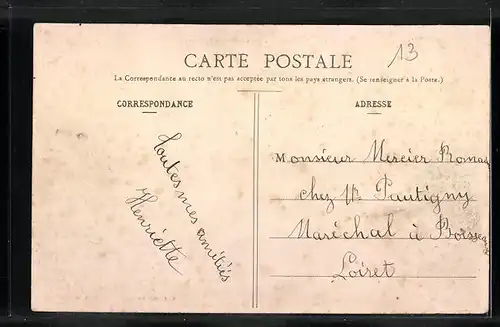 13
CARTE POSTALE
La Correspondance au recto n'est pas acceptée par tous les pays étrangers. (Se renseigner à la Poste.)
CORRESPONDANCE
Toutes mes amitiés
Henriette
ADRESSE
Monsieur Mercier Romain
chez Mr Pautigny
Maréchal à Boisseaux
Loiret